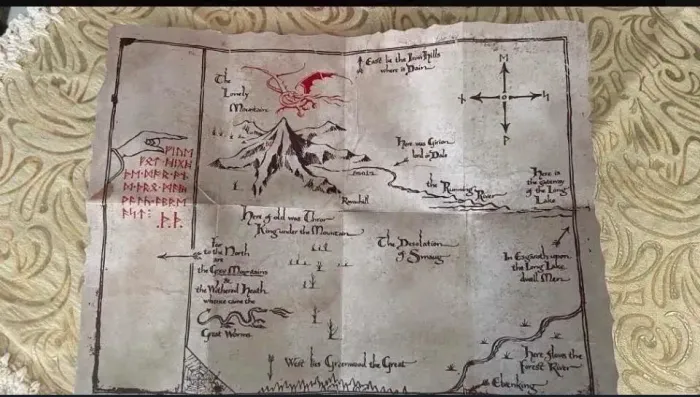 East lie the Iron Hills
where is Dain
The
Lonely
Mountain
ᛖ
ᚾ ᛋ
ᚹ
Here was Girion
lord in Dale
ᚠᛁᚢᛖ
ᚦ·ᚦ·
the Running River
Here is
the gateway
of the Long
Lake
Ravenhill
Here of old was Thror
King under the Mountain
The Desolation
of Smaug
Far
to the North
are
the Grey Mountains
&
the Withered Heath
whence came the
Great Worms
In Esgaroth upon
the Long Lake
dwell Men
West lies Greenwood the Great
Here flows the
Forest River
Elvenking